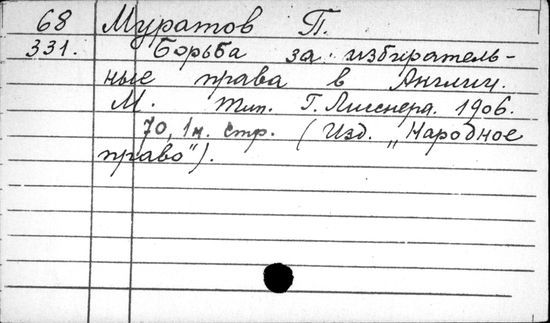 68 Муратов П.
331. Борьба за избиратель-
ные права в Англии.
М. Тип. Г. Лисснера. 1906.
70, 1н. стр. (Изд. „Народное
право").